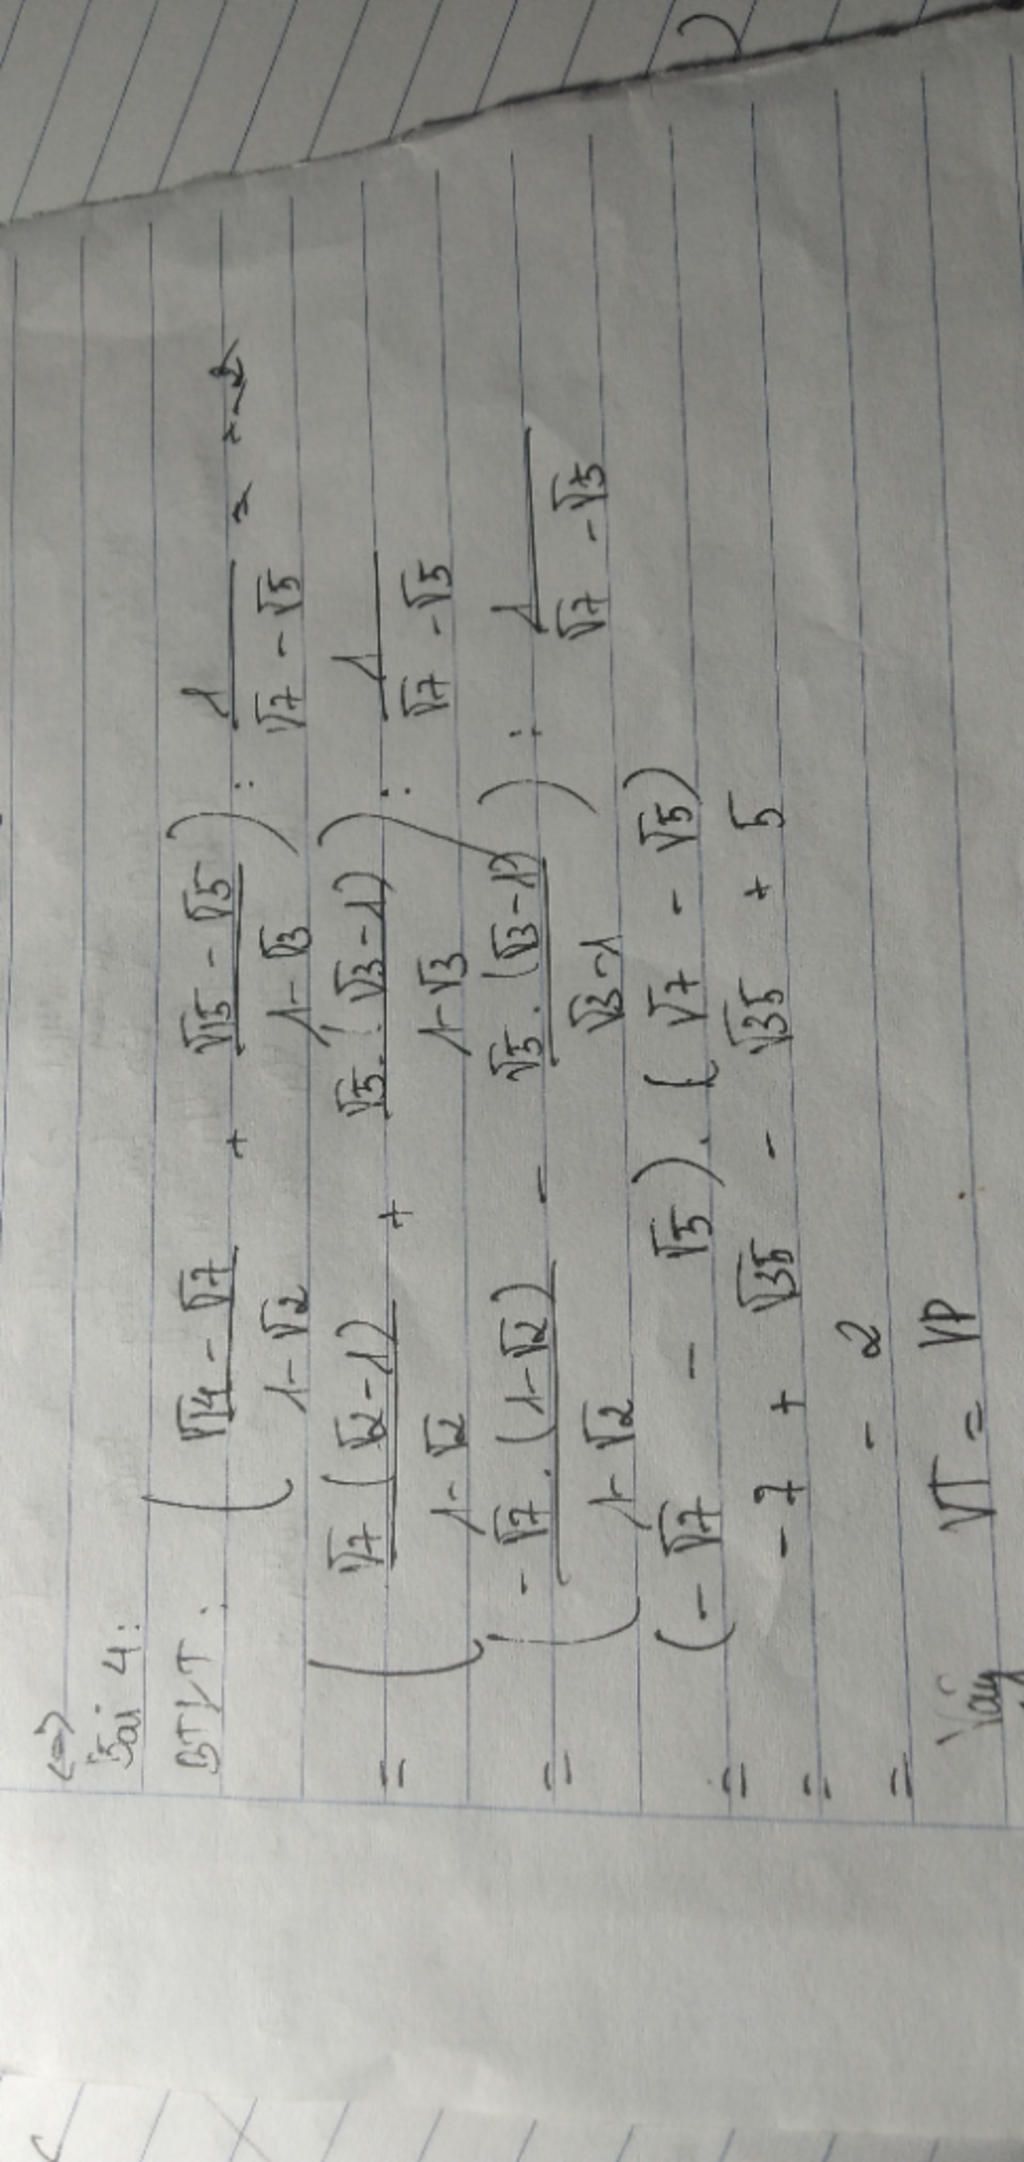 <=>
Bài 4:
BĐVT: ( (√14 - √7)/(1 - √2) + (√15 - √5)/(1 - √3) ) : 1/(√7 - √5) = -2
= ( √7 (√2 - 1)/(1 - √2) + √5 . (√3 - 1)/(1 - √3) ) : 1/(√7 - √5)
= ( -√7 . (1 - √2)/(1 - √2) - √5 . (√3 - 1)/(√3 - 1) ) : 1/(√7 - √5)
= (- √7 - √5) . (√7 - √5)
= - 7 + √35 - √35 + 5
= - 2
Vậy VT = VP